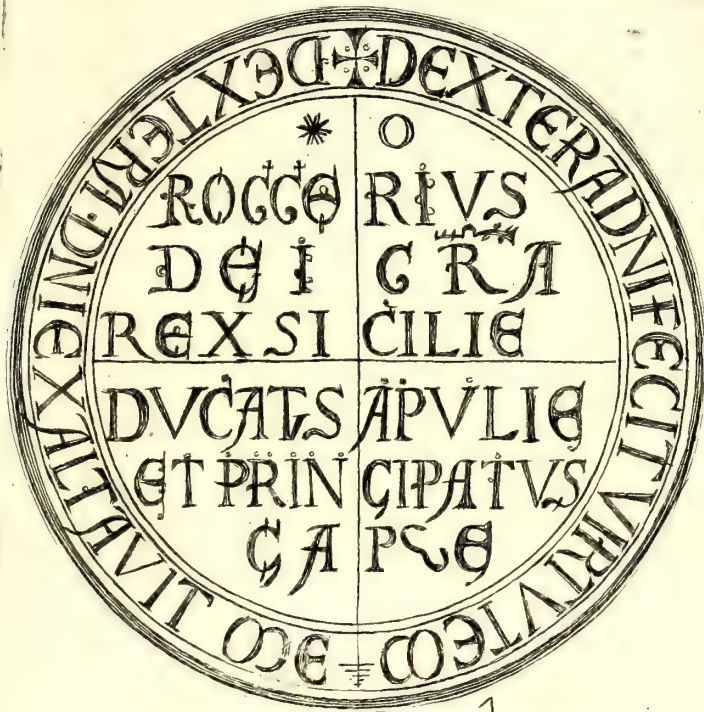 ✠ DEXTERA DNI FECIT VIRTVTEM
DEXTERA · DNI EXALTAVIT ME
* O
ROGGE RIVS
DEI GRA
REX SI CILIE
DVCATS APVLIE
ET PRIN CIPATVS
CA PVE